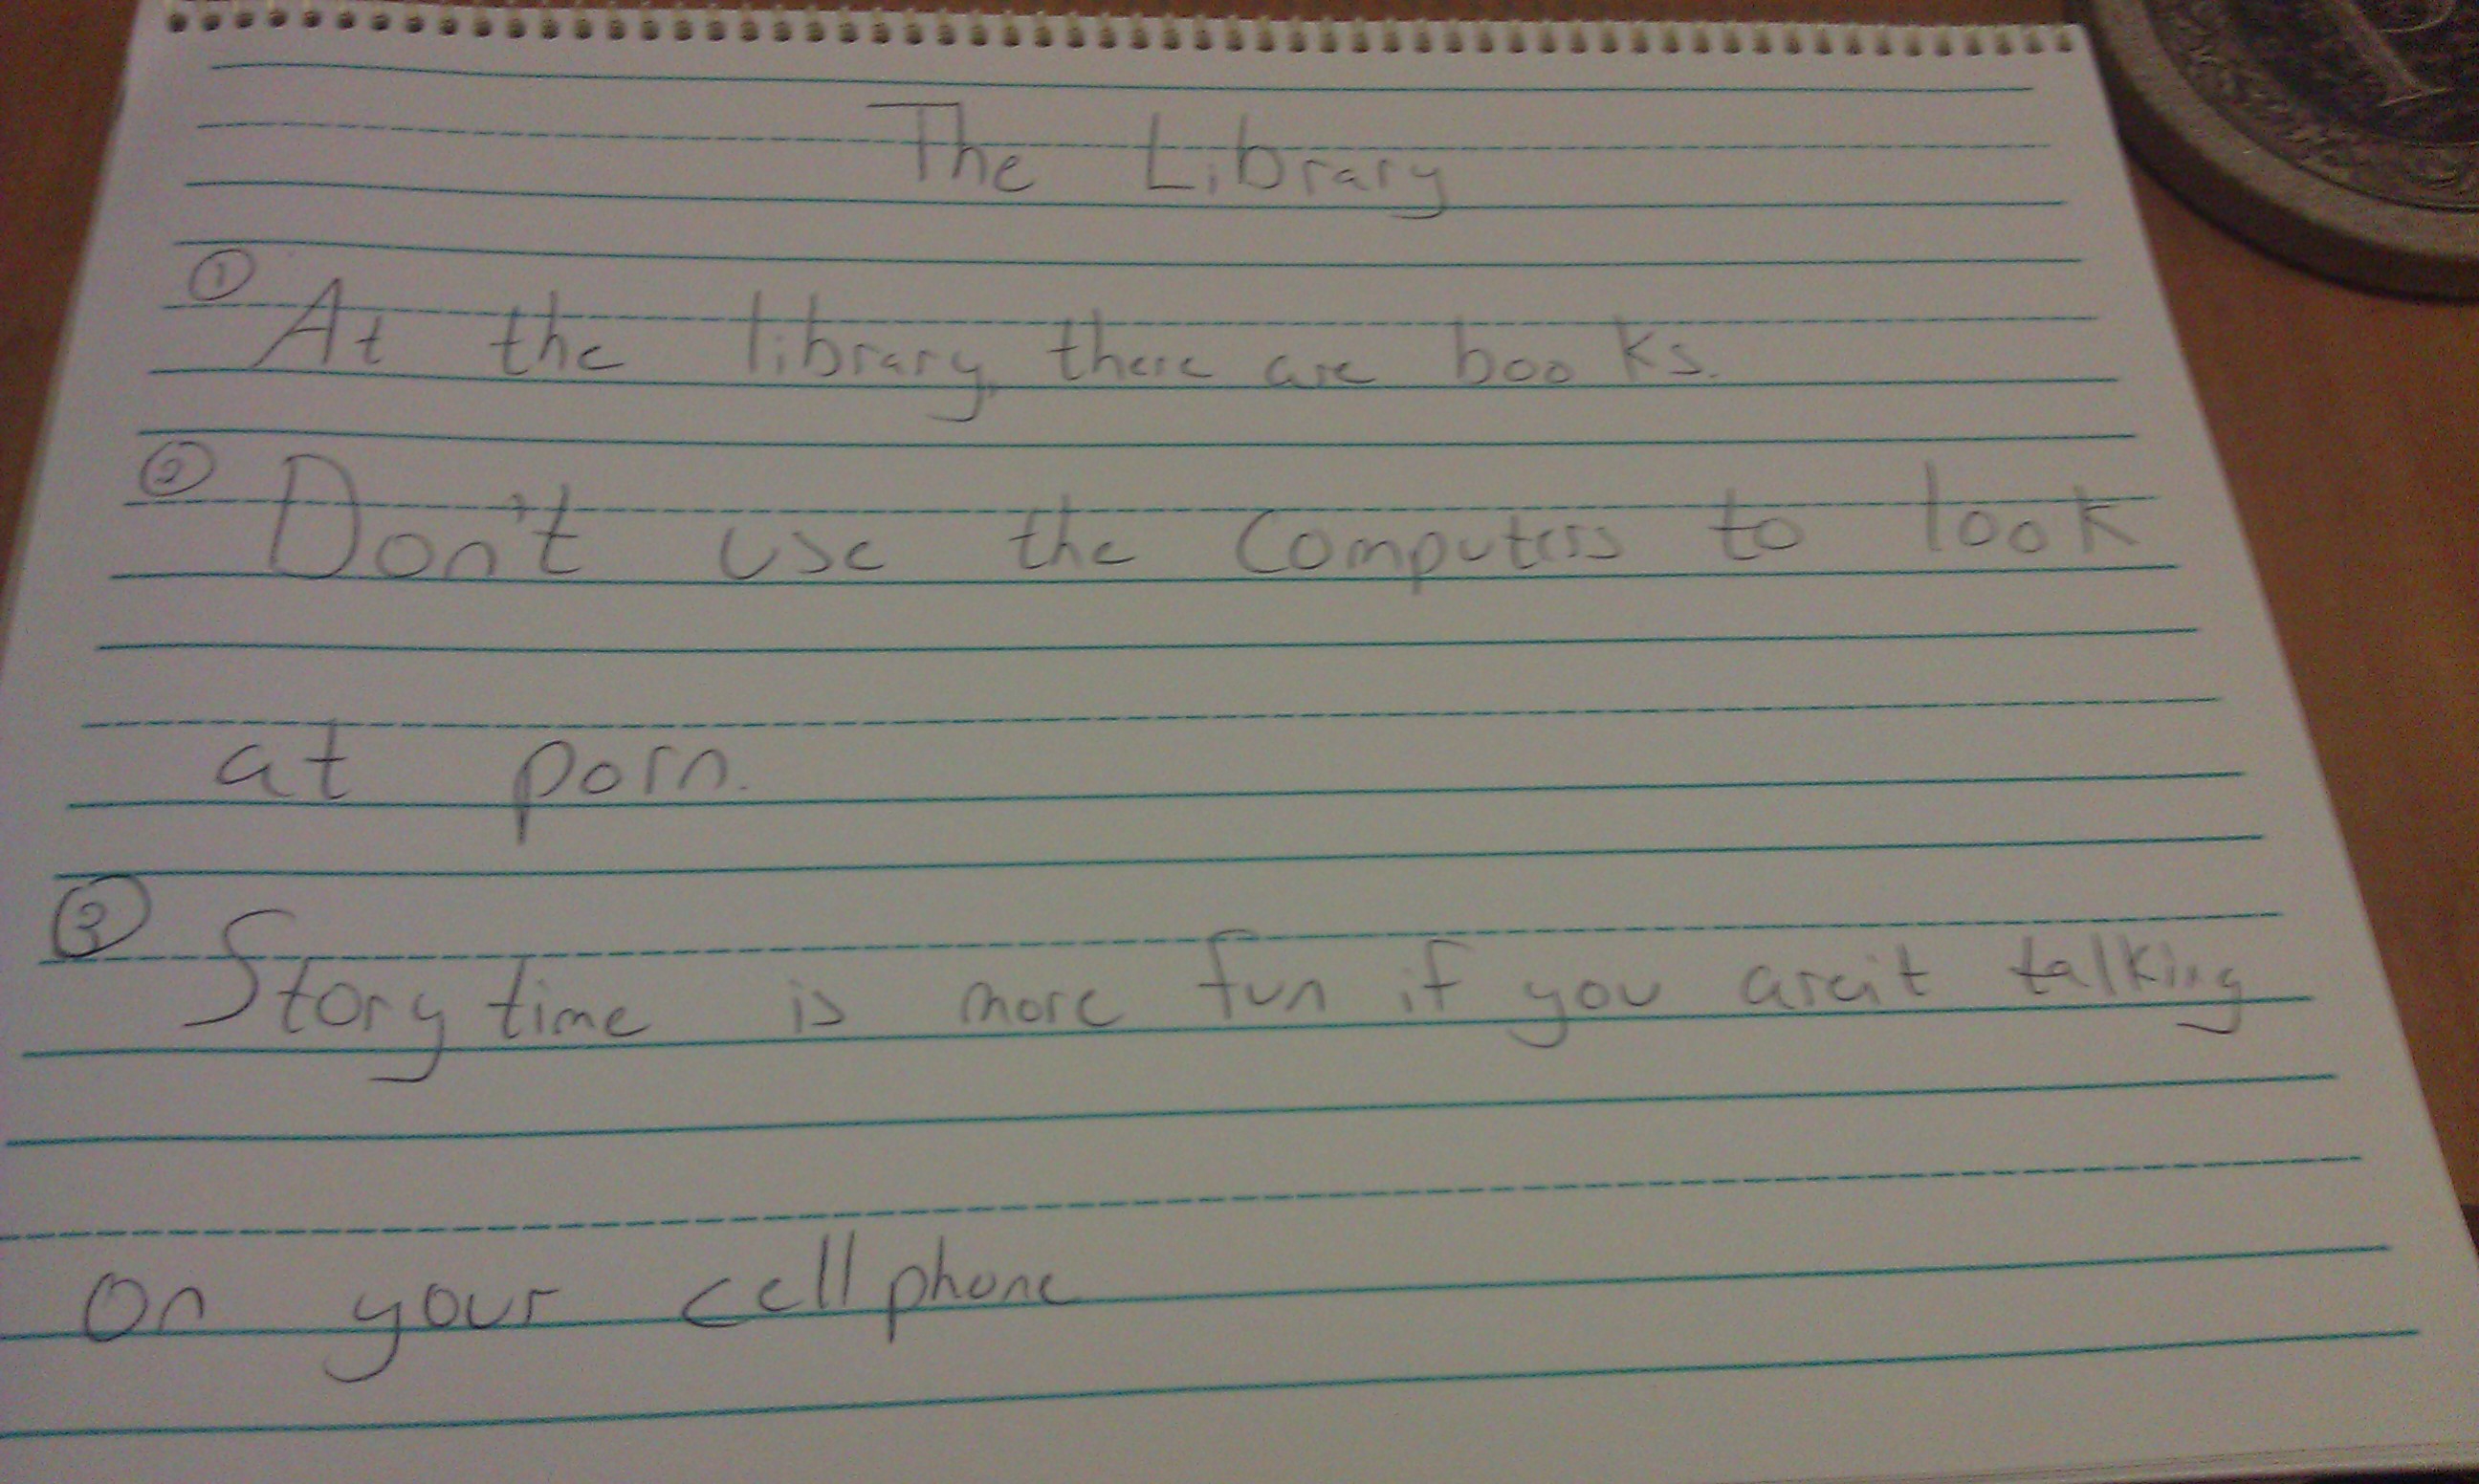 The Library
① At the library, there are books.
② Don't use the computers to look
at porn.
③ Story time is more fun if you aren't talking
on your cell phone